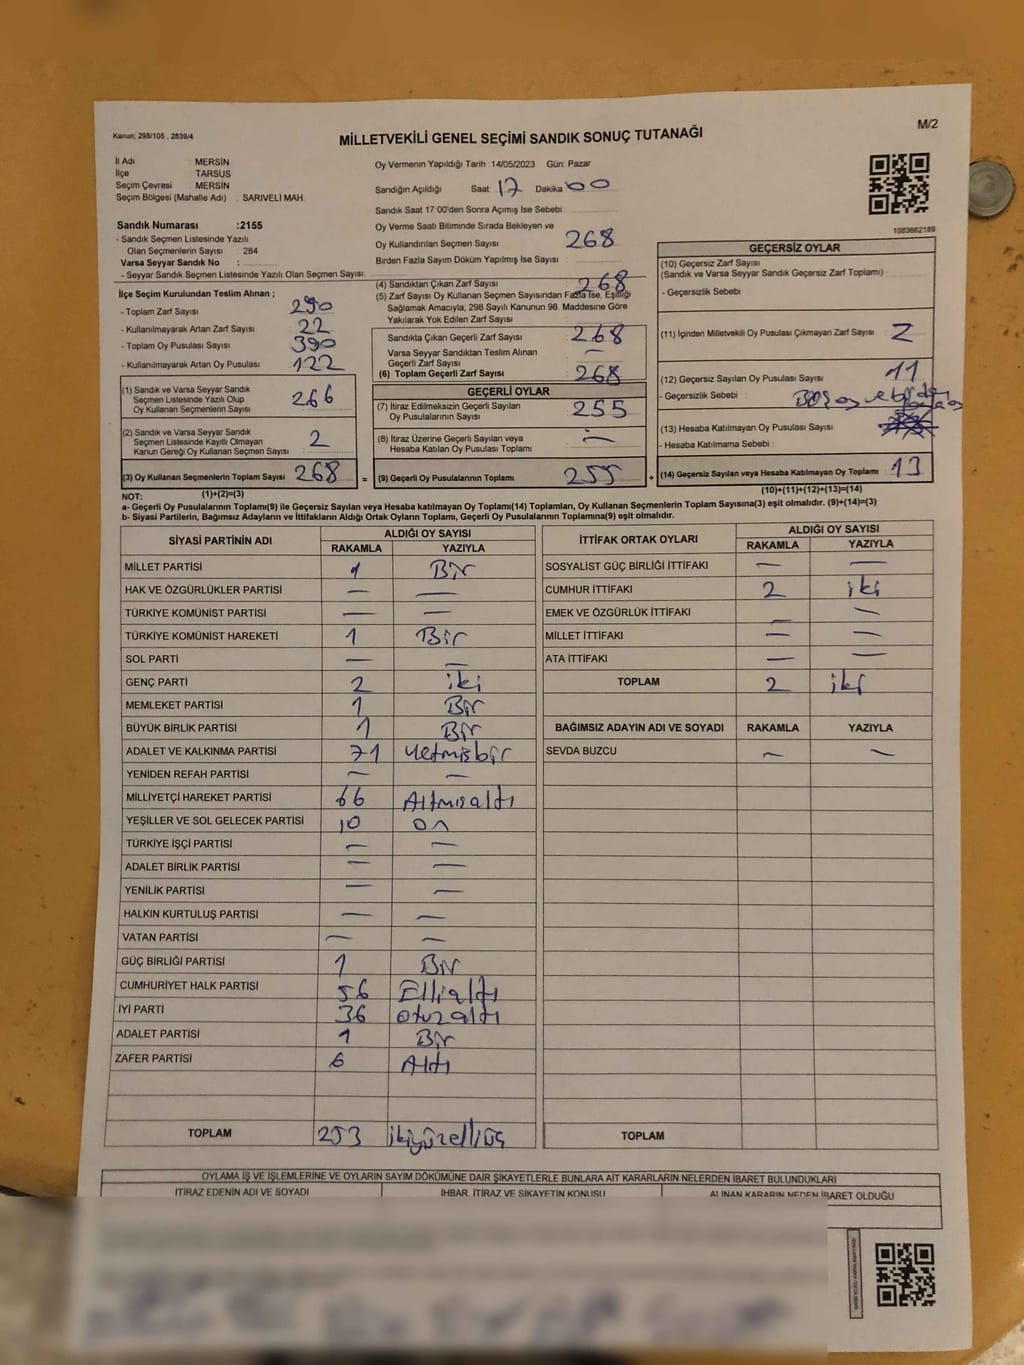 Kanun; 298/105 , 2839/4
MİLLETVEKİLİ GENEL SEÇİMİ SANDIK SONUÇ TUTANAĞI
M/2
İl Adı : MERSİN
İlçe : TARSUS
Seçim Çevresi : MERSİN
Seçim Bölgesi (Mahalle Adı) : SARIVELİ MAH.
Oy Vermenin Yapıldığı Tarih :14/05/2023 Gün: Pazar
Sandığın Açıldığı Saat: 17 Dakika 00
Sandık Saat 17:00'den Sonra Açımış İse Sebebi:
Sandık Numarası :2155
- Sandık Seçmen Listesinde Yazılı
Olan Seçmenlerin Sayısı : 284
Varsa Seyyar Sandık No :
- Seyyar Sandık Seçmen Listesinde Yazılı Olan Seçmen Sayısı:
Oy Verme Saati Bitiminde Sırada Bekleyen ve
Oy Kullandırılan Seçmen Sayısı 268
Birden Fazla Sayım Döküm Yapılmış İse Sayısı :
1083662189
İlçe Seçim Kurulundan Teslim Alınan ;
- Toplam Zarf Sayısı : 290
- Kullanılmayarak Artan Zarf Sayısı : 22
- Toplam Oy Pusulası Sayısı : 390
- Kullanılmayarak Artan Oy Pusulası : 122
(1) Sandık ve Varsa Seyyar Sandık
Seçmen Listesinde Yazılı Olup
Oy Kullanan Seçmenlerin Sayısı : 266
(2) Sandık ve Varsa Seyyar Sandık
Seçmen Listesinde Kayıtlı Olmayan
Kanun Gereği Oy Kullanan Seçmen Sayısı : 2
(3) Oy Kullanan Seçmenlerin Toplam Sayısı : 268
(1)+(2)=(3)
(4) Sandıktan Çıkan Zarf Sayısı : 268
(5) Zarf Sayısı Oy Kullanan Seçmen Sayısından Fazla İse, Eşitliği
Sağlamak Amacıyla, 298 Sayılı Kanunun 98. Maddesine Göre
Yakılarak Yok Edilen Zarf Sayısı :
Sandıkta Çıkan Geçerli Zarf Sayısı : 268
Varsa Seyyar Sandıktan Teslim Alınan
Geçerli Zarf Sayısı : —
(6) Toplam Geçerli Zarf Sayısı : 268
GEÇERLİ OYLAR
(7) İtiraz Edilmeksizin Geçerli Sayılan
Oy Pusulalarının Sayısı : 255
(8) İtiraz Üzerine Geçerli Sayılan veya
Hesaba Katılan Oy Pusulası Toplamı : —
= (9) Geçerli Oy Pusulalarının Toplamı : 255 +
GEÇERSİZ OYLAR
(10) Geçersiz Zarf Sayısı
(Sandık ve Varsa Seyyar Sandık Geçersiz Zarf Toplamı) :
- Geçersizlik Sebebi :
(11) İçinden Milletvekili Oy Pusulası Çıkmayan Zarf Sayısı : 2
(12) Geçersiz Sayılan Oy Pusulası Sayısı : 11
- Geçersizlik Sebebi :
(13) Hesaba Katılmayan Oy Pusulası Sayısı :
- Hesaba Katılmama Sebebi :
(14) Geçersiz Sayılan veya Hesaba Katılmayan Oy Toplamı : 13
(10)+(11)+(12)+(13)=(14)
NOT:
a- Geçerli Oy Pusulalarının Toplamı(9) ile Geçersiz Sayılan veya Hesaba katılmayan Oy Toplamı(14) Toplamları, Oy Kullanan Seçmenlerin Toplam Sayısına(3) eşit olmalıdır. (9)+(14)=(3)
b- Siyasi Partilerin, Bağımsız Adayların ve İttifakların Aldığı Ortak Oyların Toplamı, Geçerli Oy Pusulalarının Toplamına(9) eşit olmalıdır.
SİYASİ PARTİNİN ADI ALDIĞI OY SAYISI
RAKAMLA YAZIYLA
MİLLET PARTİSİ 1 Bir
HAK VE ÖZGÜRLÜKLER PARTİSİ — —
TÜRKİYE KOMÜNİST PARTİSİ — —
TÜRKİYE KOMÜNİST HAREKETİ 1 Bir
SOL PARTİ — —
GENÇ PARTİ 2 iki
MEMLEKET PARTİSİ 1 Bir
BÜYÜK BİRLİK PARTİSİ 1 Bir
ADALET VE KALKINMA PARTİSİ 71 Yetmişbir
YENİDEN REFAH PARTİSİ — —
MİLLİYETÇİ HAREKET PARTİSİ 66 Altmışaltı
YEŞİLLER VE SOL GELECEK PARTİSİ 10 on
TÜRKİYE İŞÇİ PARTİSİ — —
ADALET BİRLİK PARTİSİ — —
YENİLİK PARTİSİ — —
HALKIN KURTULUŞ PARTİSİ — —
VATAN PARTİSİ — —
GÜÇ BİRLİĞİ PARTİSİ 1 Bir
CUMHURİYET HALK PARTİSİ 56 Ellialtı
İYİ PARTİ 36 otuzaltı
ADALET PARTİSİ 1 Bir
ZAFER PARTİSİ 6 Altı
TOPLAM 253 ikiyüzelliüç
İTTİFAK ORTAK OYLARI ALDIĞI OY SAYISI
RAKAMLA YAZIYLA
SOSYALİST GÜÇ BİRLİĞİ İTTİFAKI — —
CUMHUR İTTİFAKI 2 iki
EMEK VE ÖZGÜRLÜK İTTİFAKI — —
MİLLET İTTİFAKI — —
ATA İTTİFAKI — —
TOPLAM 2 iki
BAĞIMSIZ ADAYIN ADI VE SOYADI RAKAMLA YAZIYLA
SEVDA BUZCU — —
TOPLAM
OYLAMA İŞ VE İŞLEMLERİNE VE OYLARIN SAYIM DÖKÜMÜNE DAİR ŞİKAYETLERLE BUNLARA AİT KARARLARIN NELERDEN İBARET BULUNDUKLARI
İTİRAZ EDENİN ADI VE SOYADI İHBAR, İTİRAZ VE ŞİKAYETİN KONUSU ALINAN KARARIN NEDEN İBARET OLDUĞU